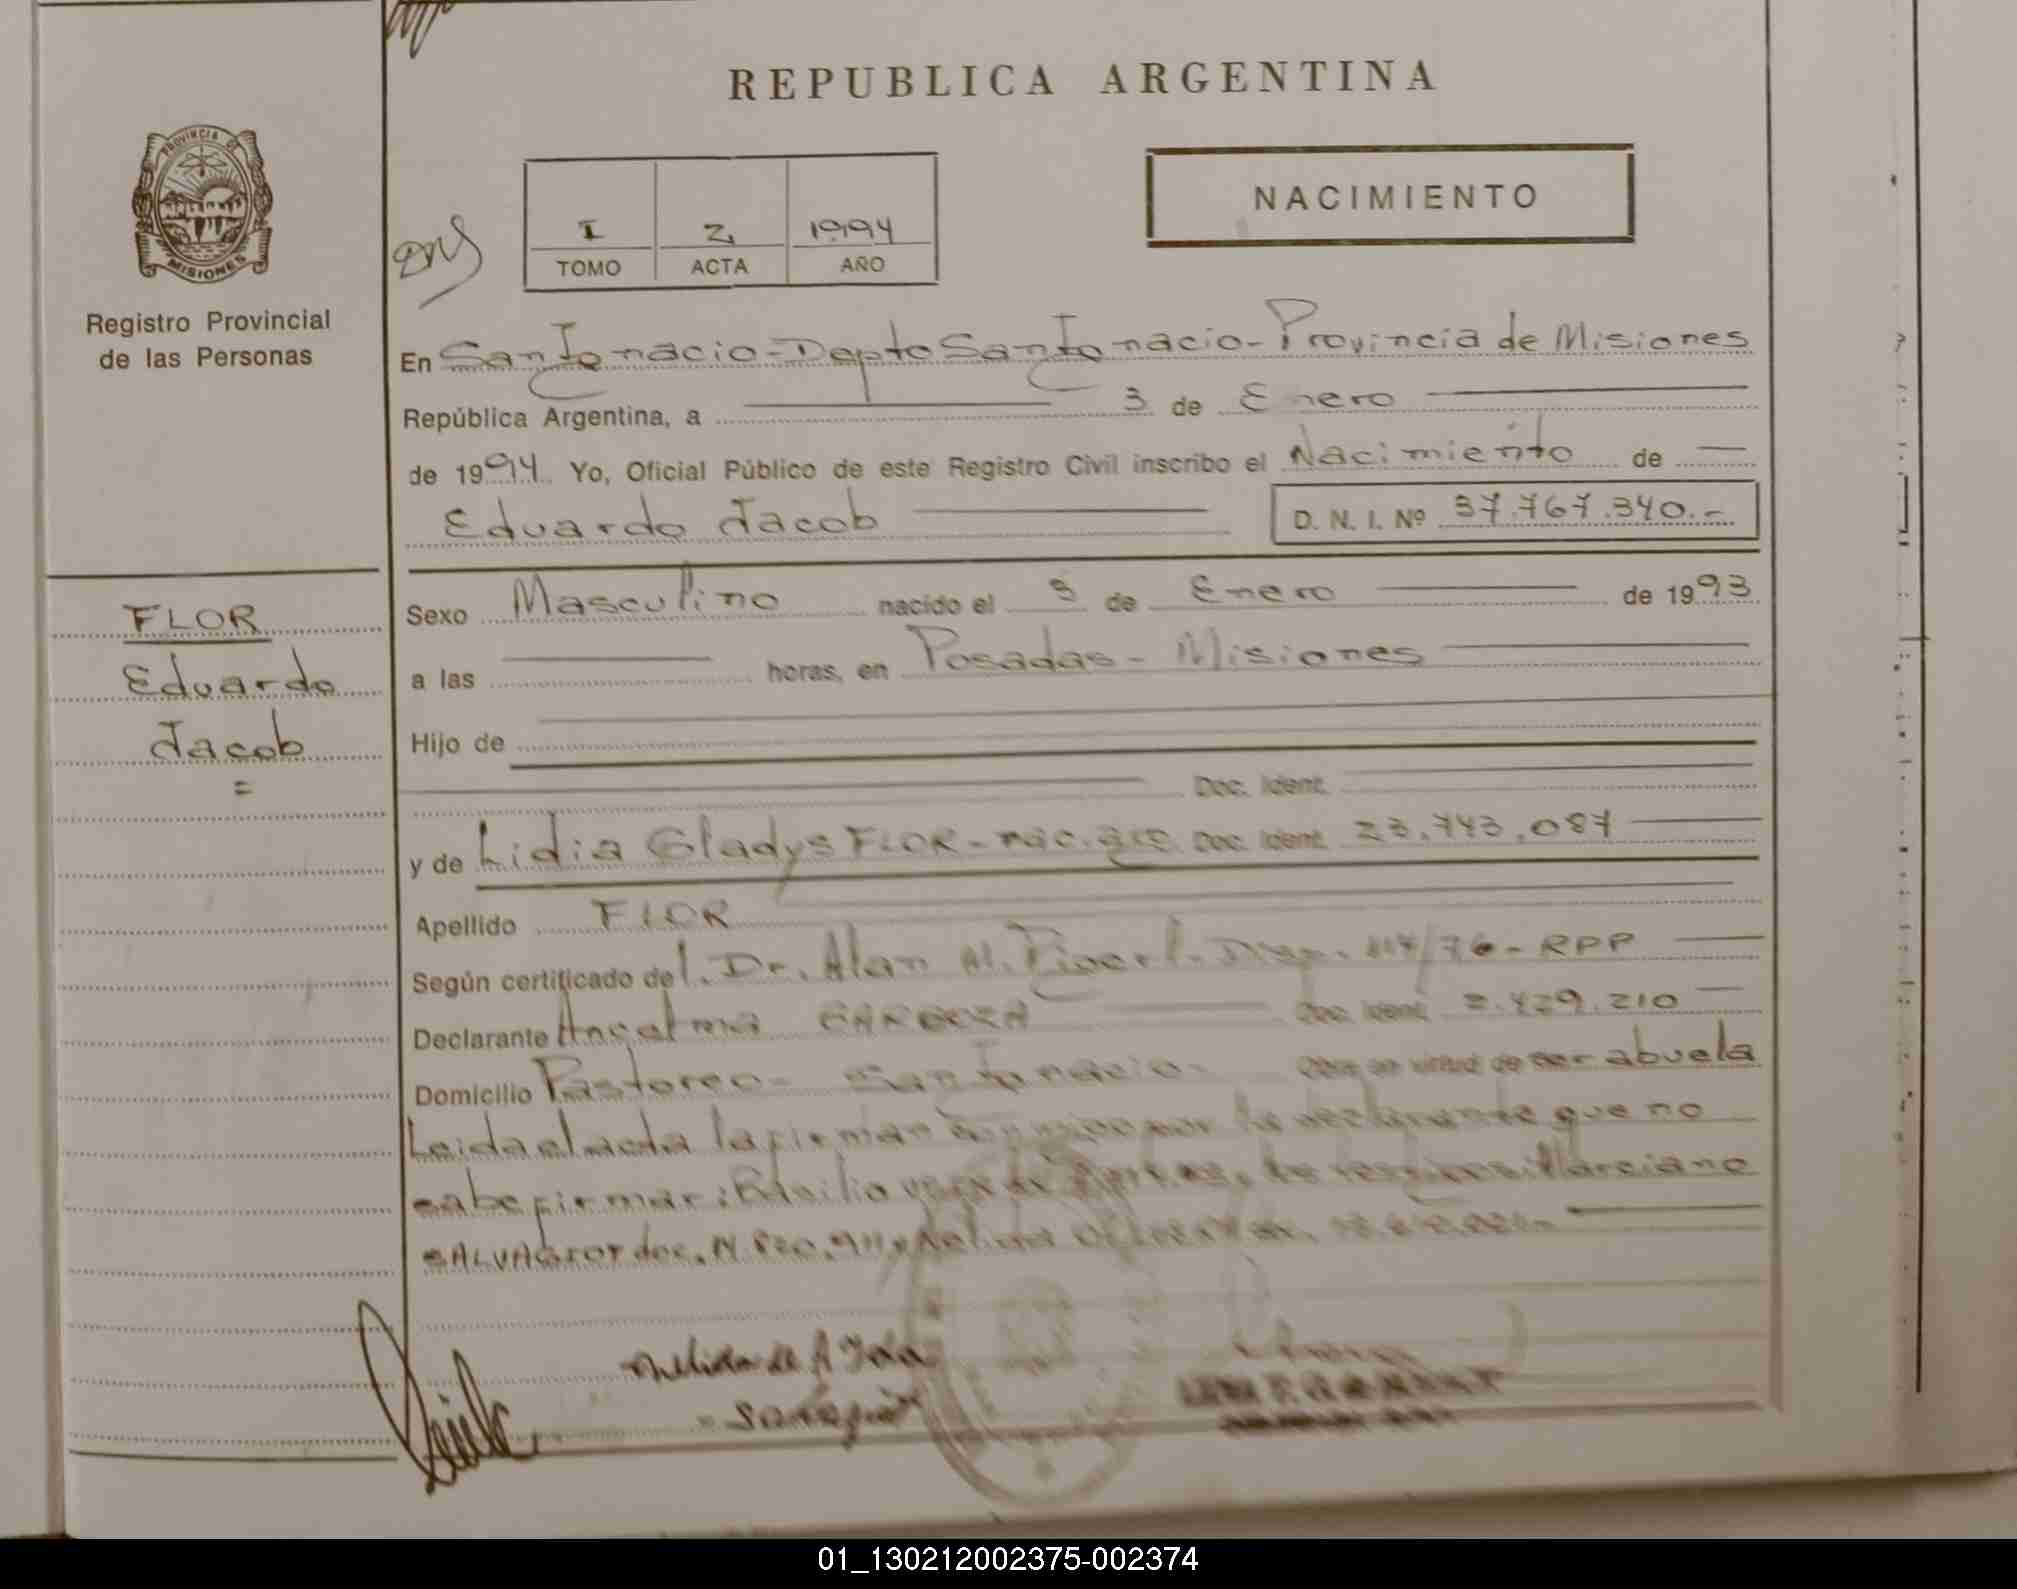 REPUBLICA ARGENTINA
PROVINCIA DE
MISIONES
Registro Provincial
de las Personas
I 2 1994
TOMO ACTA AÑO
NACIMIENTO
En San Ignacio - Depto San Ignacio - Provincia de Misiones
República Argentina, a 3 de Enero
de 1994 Yo, Oficial Público de este Registro Civil inscribo el Nacimiento de
Eduardo Jacob D. N. I. Nº 37.767.340.-
FLOR
Eduardo
Jacob
=
Sexo Masculino nacido el 3 de Enero de 1993
a las horas, en Posadas - Misiones
Hijo de
Doc. Ident.
y de Lidia Gladys FLOR - nac. arg. Doc. Ident. 23.743.087
Apellido FLOR
Según certificado del. Dr. Alan M. Disp. 117/76 - RPP
Declarante Anselma Doc. Ident. 2.429.210
Domicilio Pastoreo - San Ignacio - Obra en virtud de ser abuela
Leida el acta la firman a por la declarante que no
sabe firmar: Basilio testigos: Marciano
SALVA doc. M.
01_130212002375-002374